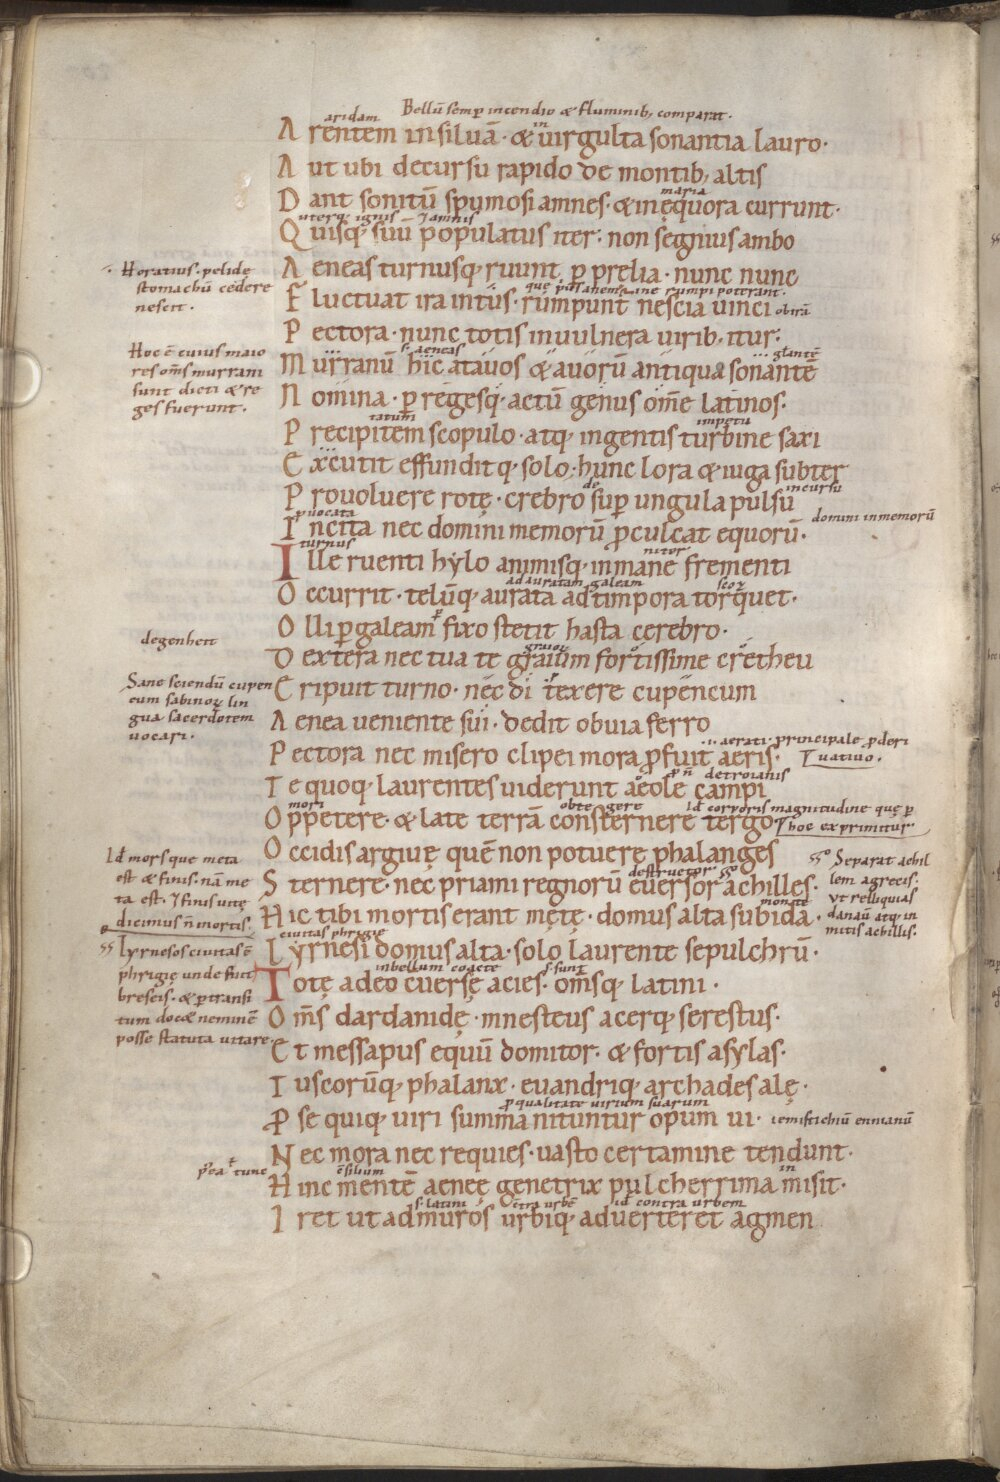 Bellū semp incendio & fluminib; comparat.
aridam in
Arentem in siluā · & uirgulta sonantia lauro ·
Aut ubi decursu rapido de montib; altis
maria
Dant sonitū spumosi amnes · & inęquora currunt ·
uterq; ignis & amnis
Quisq; suū populatus iter · non sęgnius ambo
Horatius · pelidę
stomachū cedere
nescit ·
Aeneas turnusq; ruunt p prelia · nunc nunc
Fluctuat ira intus · rumpunt nescia uinci
Pectora · nunc totis in uulnera uirib; itur ·
Hoc ē cuius maio
res om̄s murrani
sunt dicti & re
ges fuerunt ·
s · aeneas
Murranū hic atauos & auorū antiqua sonantē
Nomina · p regesq; actū genus om̄e latinos ·
impetu
Precipitem scopulo · atq; ingentis turbine saxi
Excutit effunditq; solo · hunc lora & iuga subter
de incursu
Prouoluere rotę · crebro sup ungula pulsu
puocata domini inmemorū
Incita nec domini memorū pculcat equorū ·
turnus
Ille ruenti hylo animisq; inmane frementi
ad auratam galeam
Occurrit · telūq; aurata ad timpora torquet ·
Olli p galeam fixo stetit hasta cerebro ·
degenhert
graioꝝ
Dextera nec tua te graium fortissime cretheu
Sane sciendū cupen
cum sabinoꝝ lin
gua sacerdotem
uocari ·
Eripuit turno · nec di texere cupencum
Aenea ueniente sui · dedit obuia ferro
aerati · principale p deri
uatiuo ·
Pectora nec misero clipei mora pfuit aeris ·
de troianis
Te quoq; laurentes uiderunt aeole campi
mori obtegere Id corporis magnitudine quę p
hoc exprimitur
Oppetere · & late terrā consternere tergo
Occidis argiuę quē non potuere phalanges
Id mors que meta
est & finis · nā me
ta est · finis uitę
dicimus n̄ mortis ·
Separat achil
lem agrecis ·
ut relliquias
danaū atq; in
mitis achillis ·
destructor
Sternere · nec priami regnorū euersor achilles ·
monte
Hic tibi mortis erant mętę · domus alta sub ida ·
ciuitas phrigię
Lyrnesi domus alta · solo laurente sepulchrū ·
Lyrnesos ciuitas ē
phrigię unde fuit
breseis · & p transi
tum docet neminē
posse statuta uitare ·
inbellum coacte s · sunt
Totę adeo cuersę acies · om̄sq; latini ·
Om̄s dardanidę · mnesteus acerq; serestus ·
Et messapus equū domitor · & fortis asylas ·
Tuscorūq; phalanx · euandriq; archades alę ·
p qualitate uirium suarum
P se quiq; uiri summa nituntur opum ui · iemistichiū ennianū
Nec mora nec requies · uasto certamine tendunt ·
cōsilium in
Hinc mentē aeneę genetrix pulcherrima misit ·
s · latini cōtra urbē id contra urbem
Iret ut ad muros urbiq; aduerteret agmen